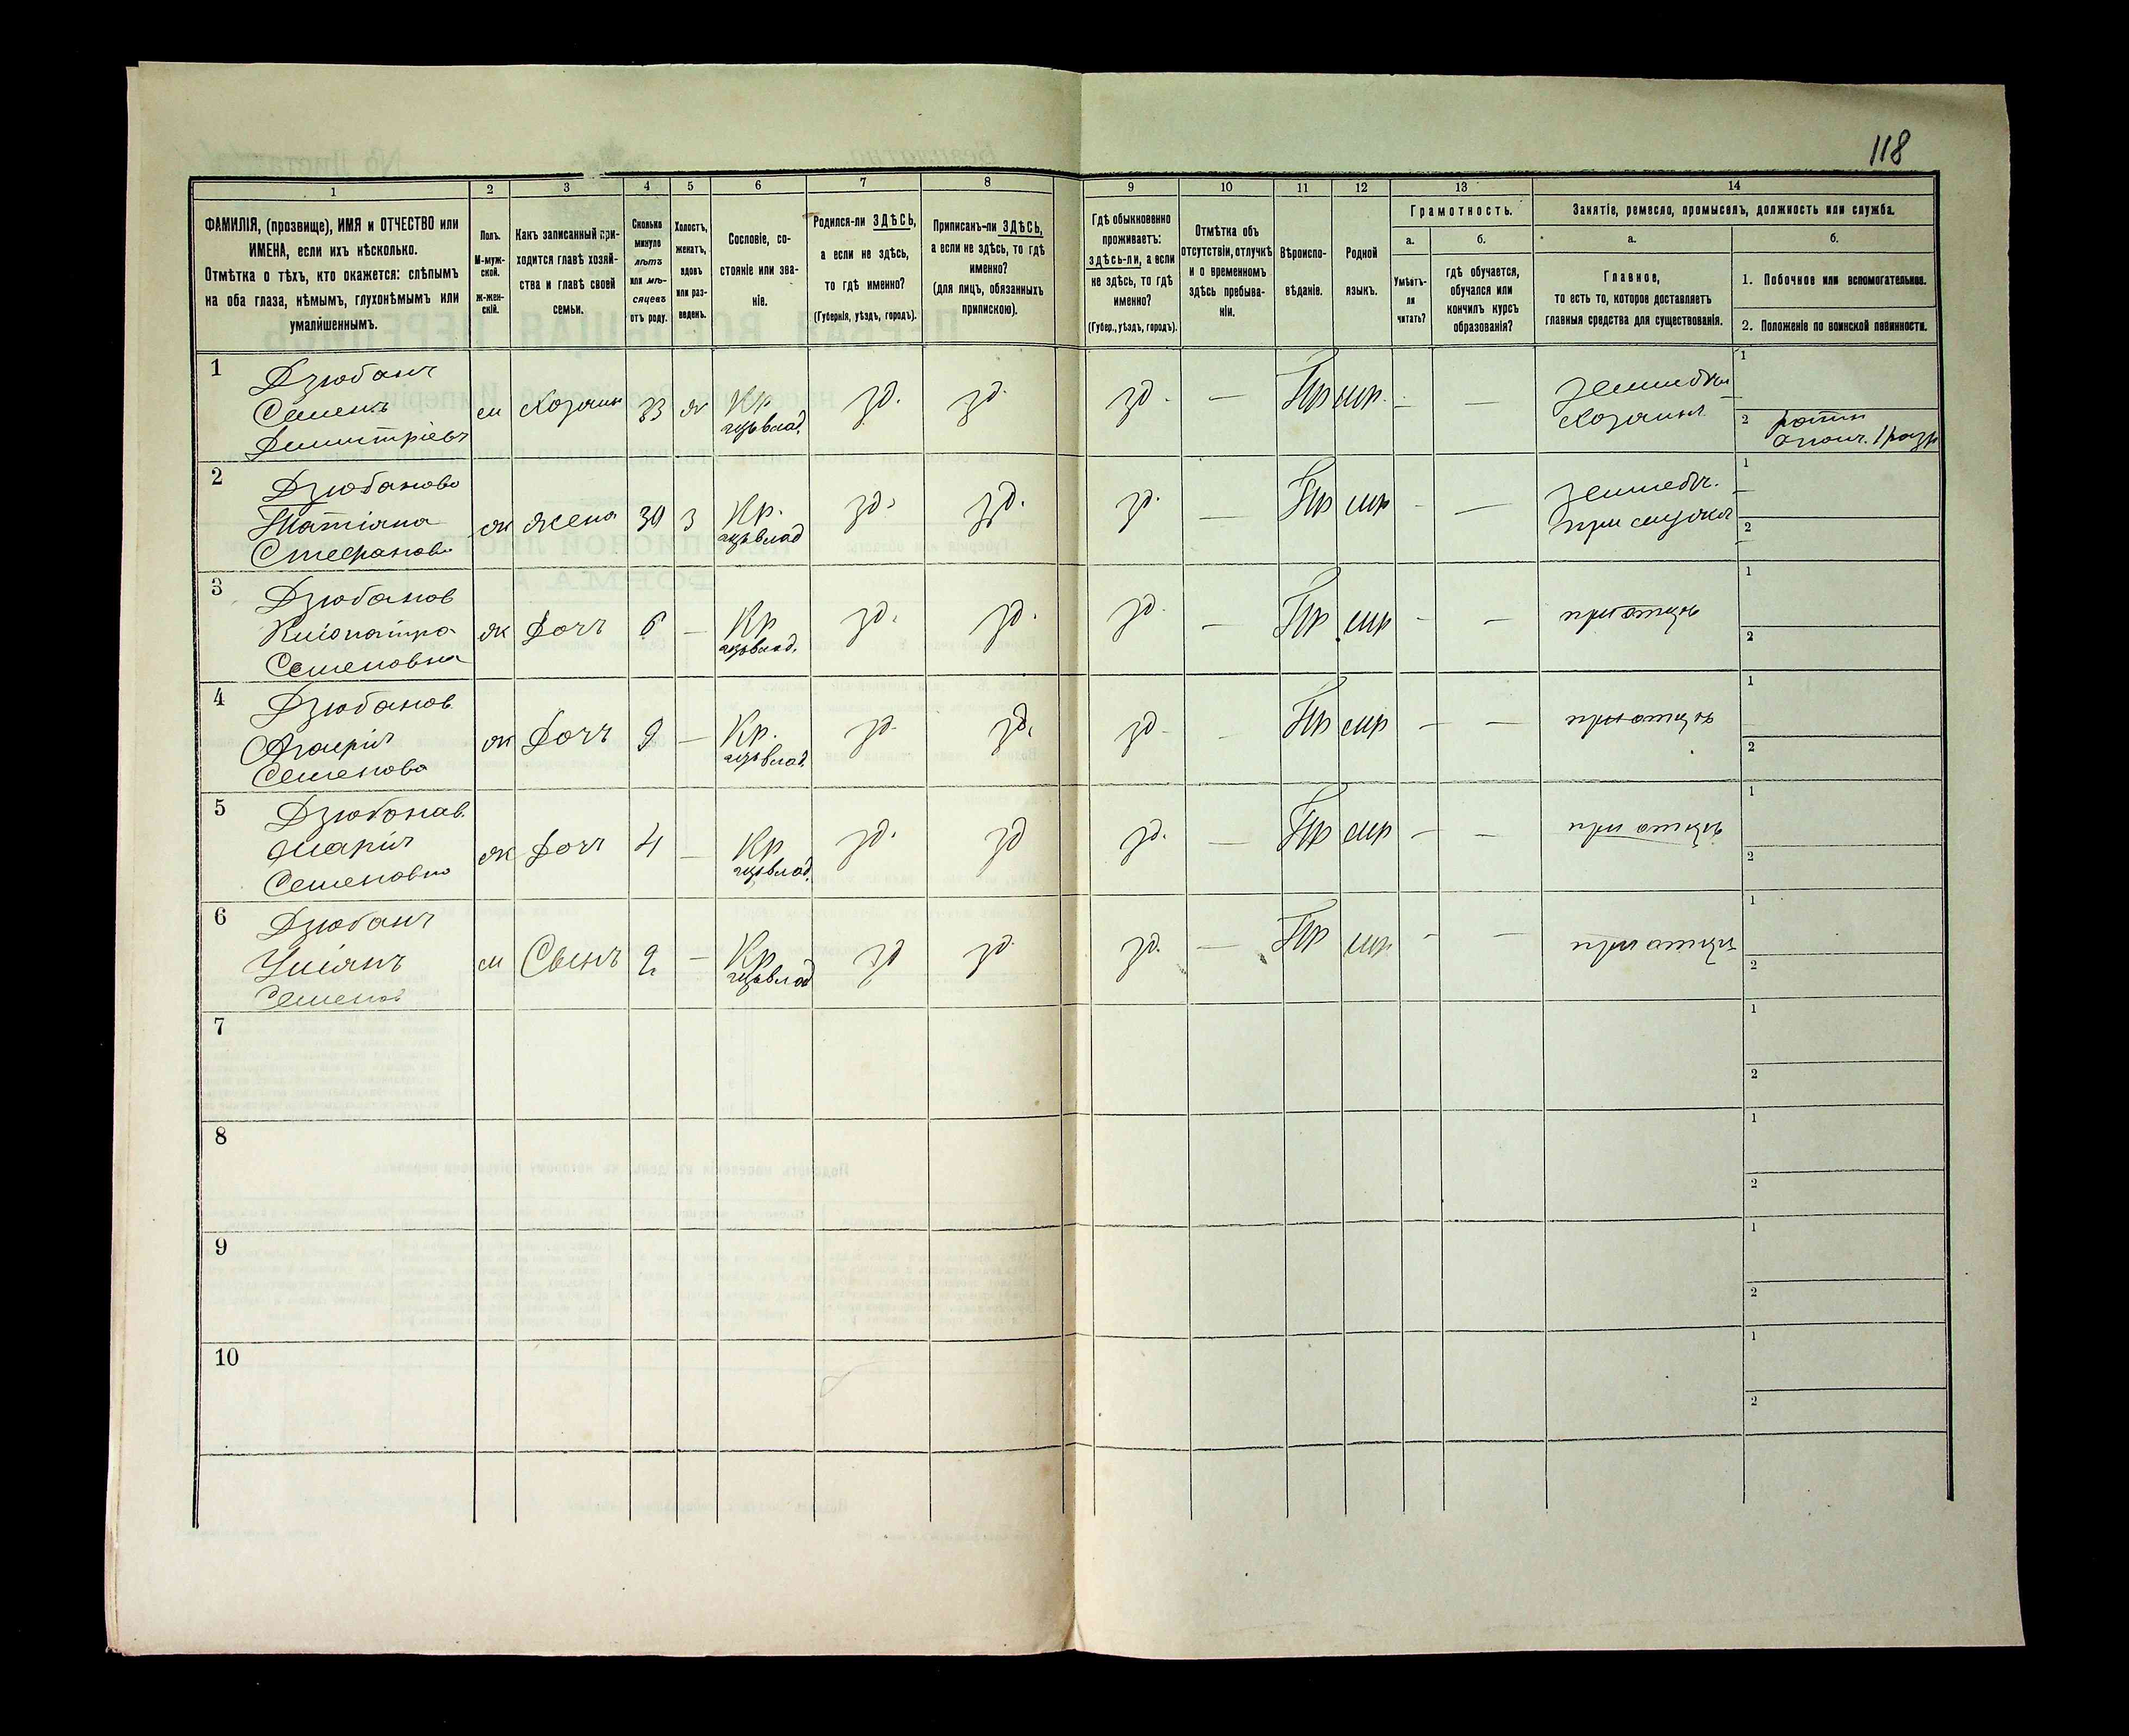 118
1 2 3 4 5 6 7 8 9 10 11 12 13 14
ФАМИЛІЯ, (прозвище), ИМЯ и ОТЧЕСТВО или
ИМЕНА, если ихъ нѣсколько.
Отмѣтка о тѣхъ, кто окажется: слѣпымъ
на оба глаза, нѣмымъ, глухонѣмымъ или
умалишеннымъ.
Полъ.
М-муж-
ской.
ж-жен-
скій.
Какъ записанный при-
ходится главѣ хозяй-
ства и главѣ своей
семьи.
Сколько
минуло
лѣтъ
или мѣ-
сяцевъ
отъ роду.
Холостъ,
женатъ,
вдовъ
или раз-
веденъ.
Сословіе, со-
стояніе или зва-
ніе.
Родился-ли ЗДѢСЬ,
а если не здѣсь,
то гдѣ именно?
(Губернія, уѣздъ, городъ).
Приписанъ-ли ЗДѢСЬ,
а если не здѣсь, то гдѣ
именно?
(для лицъ, обязанныхъ
припискою).
Гдѣ обыкновенно
проживаетъ:
здѣсь-ли, а если
не здѣсь, то гдѣ
именно?
(Губер., уѣздъ, городъ).
Отмѣтка объ
отсутствіи, отлучкѣ
и о временномъ
здѣсь пребыва-
ніи.
Вѣроиспо-
вѣданіе.
Родной
языкъ.
Грамотность.
а.
Умѣетъ-
ли
читать?
б.
гдѣ обучается,
обучался или
кончилъ курсъ
образованія?
Занятіе, ремесло, промыселъ, должность или служба.
а.
Главное,
то есть то, которое доставляетъ
главныя средства для существованія.
б.
1. Побочное или вспомогательное.
2. Положеніе по воинской повинности.
1 Дзюбанъ
Семенъ
Димитріевъ
м Хозяин 33 ж Кр зд. зд. зд. — Пр мр. — —
1 —
2 ратн
1 разр
2 Дзюбанова
Татіана
Стефанова
ж жена 30 з Кр. зд. зд. зд. — Пр мр - —
1 —
2 —
3 Дзюбанов
Кліопатра
Семеновна
ж Дочъ 6 — Кр зд. зд. зд. — Пр мр - — при отцѣ
1
2
4 Дзюбанов
Семенова
ж Дочъ 9 — Кр. зд. зд. зд. - Пр мр — — при отцѣ
1
2
5 Дзюбонав.
Марія
Семеновна
ж Дочъ 4 — Кр зд. зд зд. — Пр мр — — при отцѣ
1
2
6 Дзюбанъ
Уліянъ
Семенов
м Сынъ 2 — Кр зд зд зд. — Пр мр - — при отцѣ
1
2
7
1
2
8
1
2
9
1
2
10
1
2